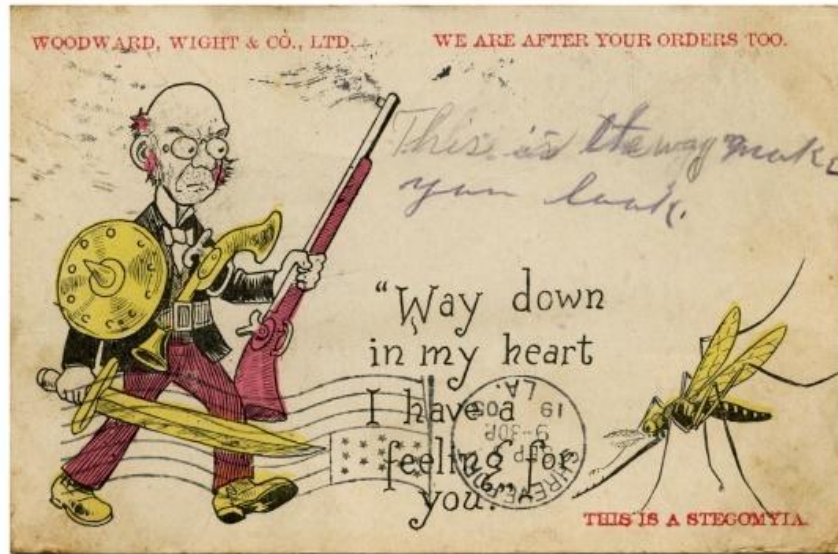 WOODWARD, WIGHT & CO., LTD. WE ARE AFTER YOUR ORDERS TOO.
This is the way make
you look.
"Way down
in my heart
I have a
feeling for
you."
SHREVEPORT
LA.
SEP
19
9-30P
05
THIS IS A STEGOMYIA.